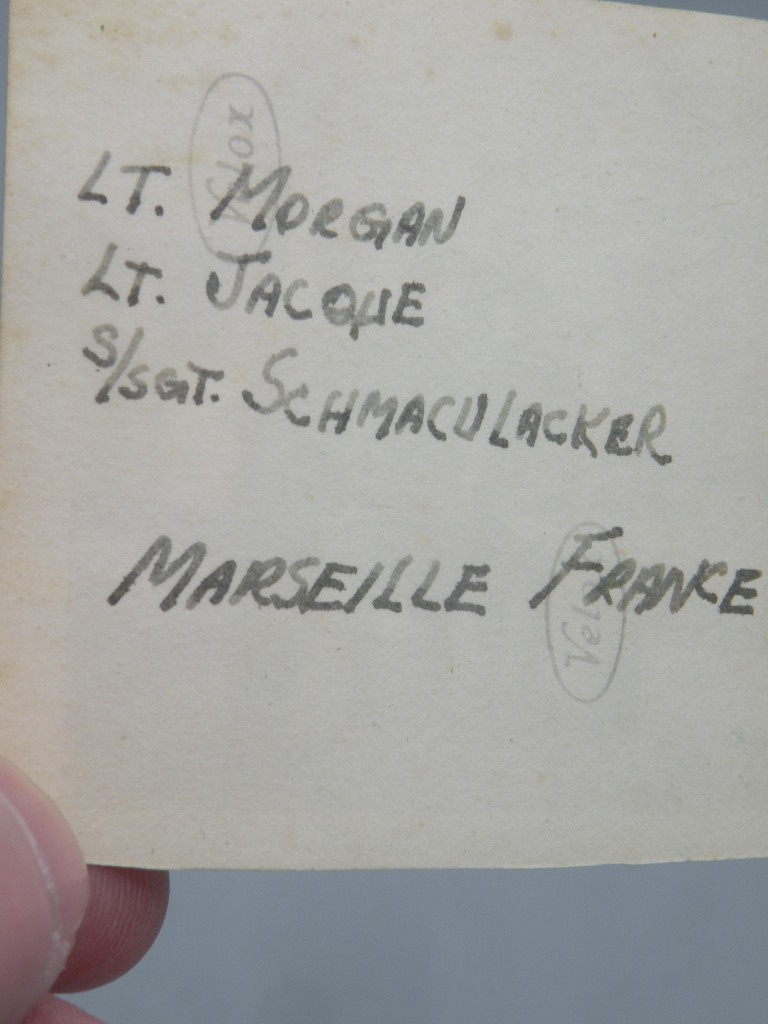 Velox
LT. MORGAN
LT. JACQUE
S/SGT. SCHMACULACKER
MARSEILLE FRANCE
Velox